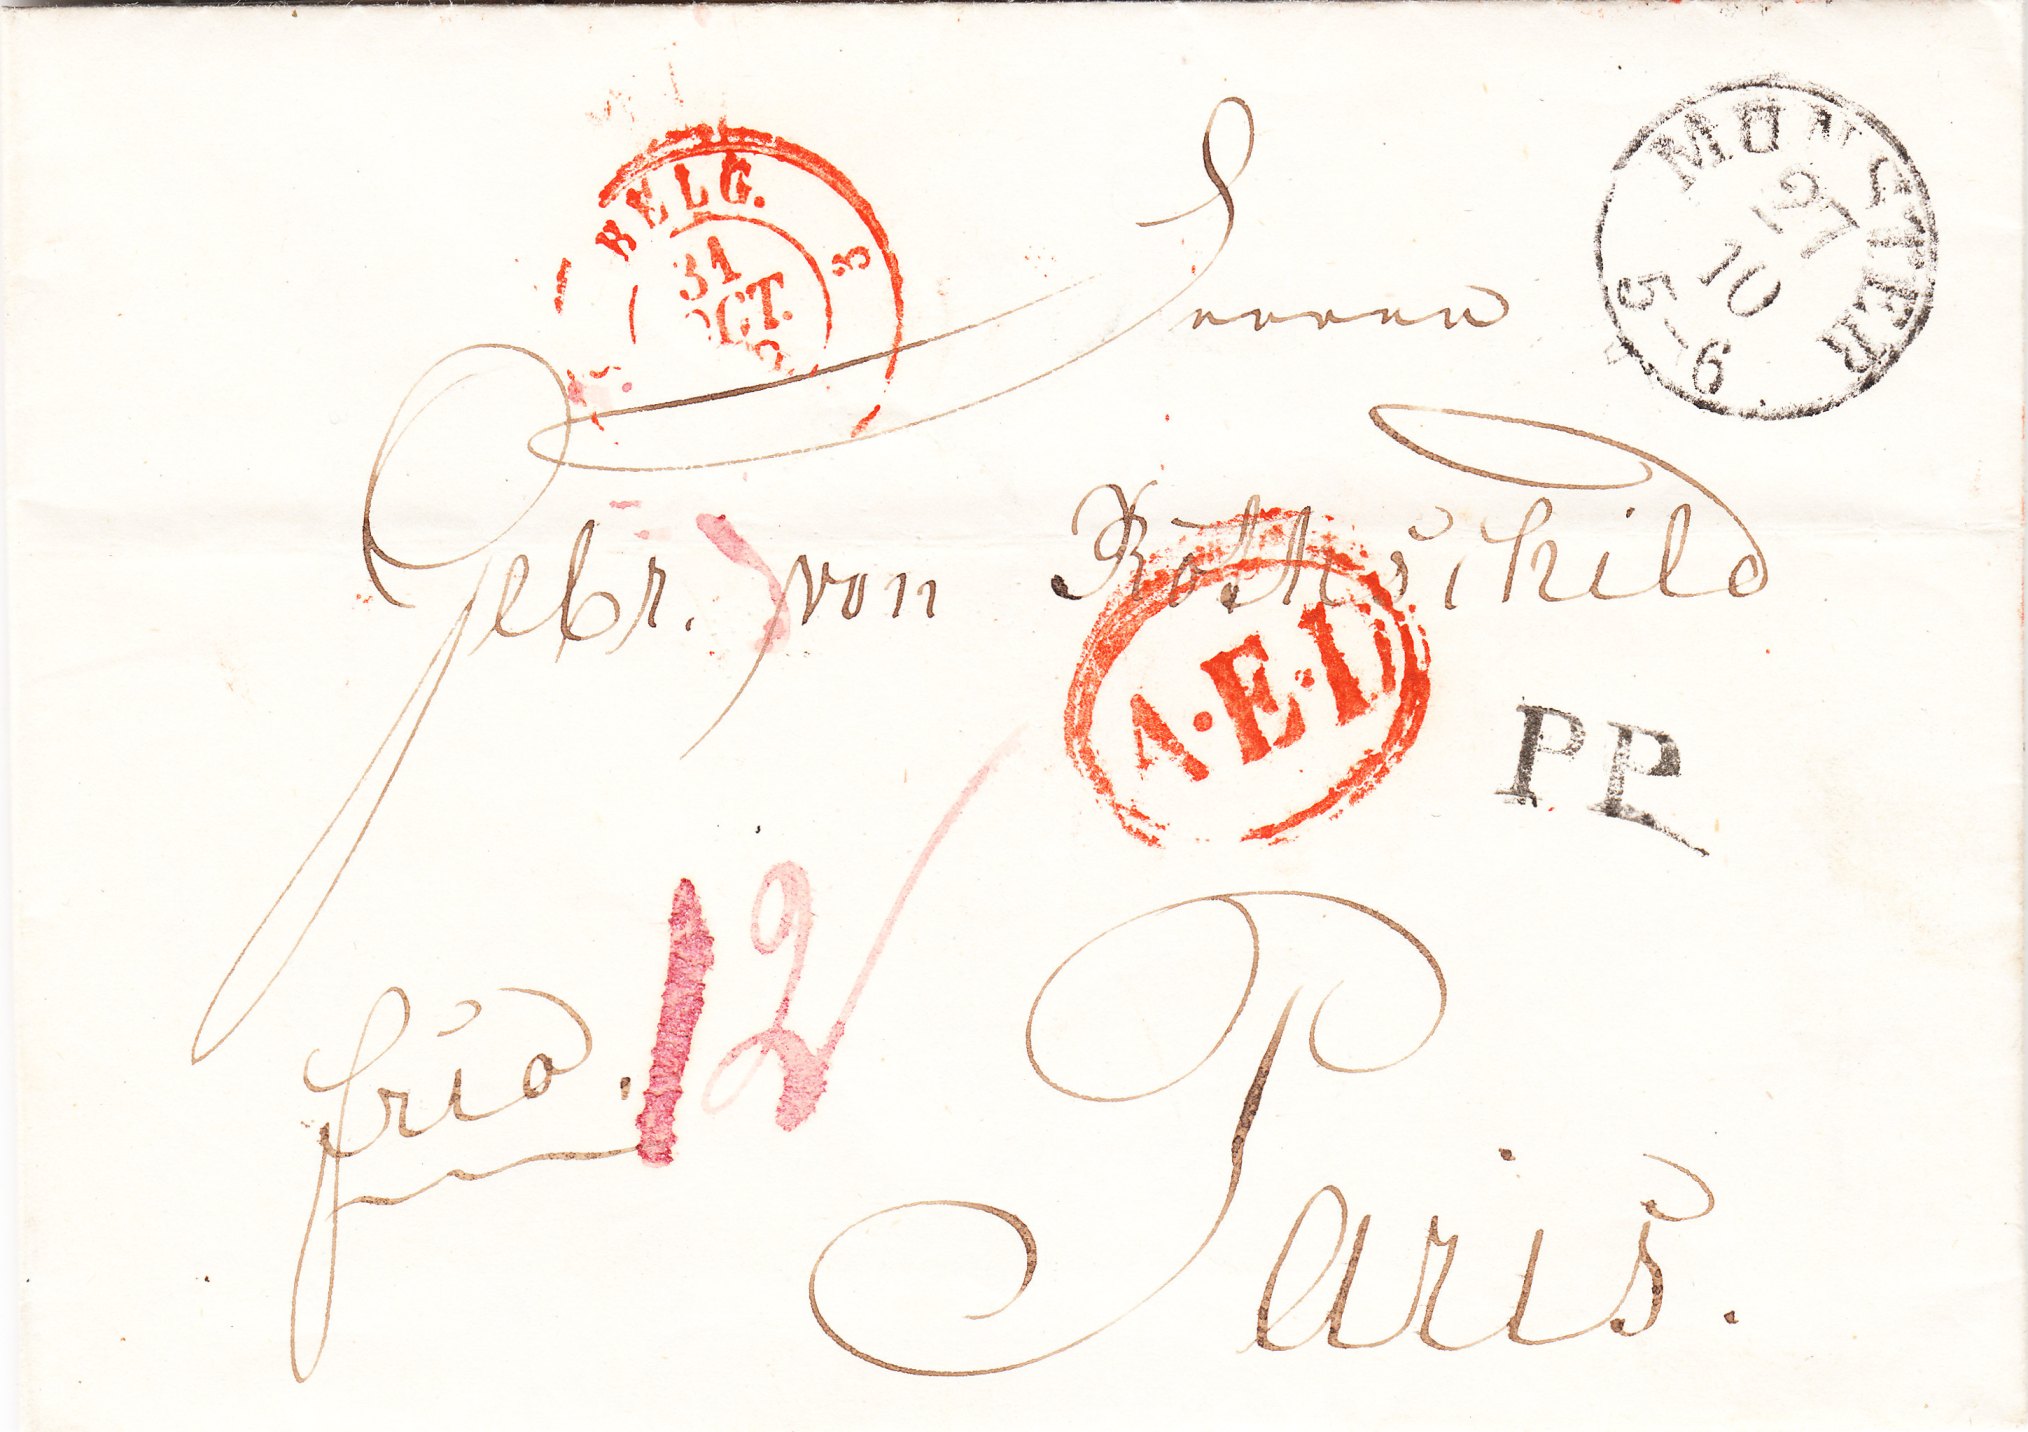 BELG. 3
31
OCT.
MUNSTER
27
10
5-6
Herren
Gebr. von Rothschild
A.E.D.
PP
frco. 12
Paris.